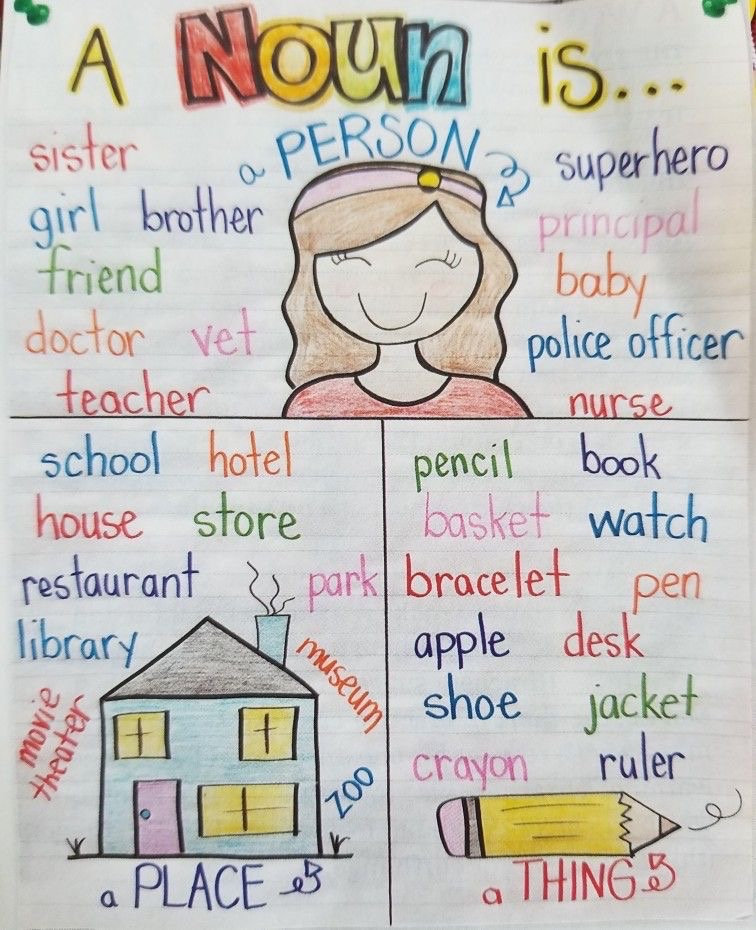 A Noun is...
a PERSON
sister
superhero
girl brother
principal
friend
baby
doctor vet
police officer
teacher
nurse
school hotel
house store
restaurant park
library
museum
movie
theater
zoo
a PLACE
pencil book
basket watch
bracelet pen
apple desk
shoe jacket
crayon ruler
a THING